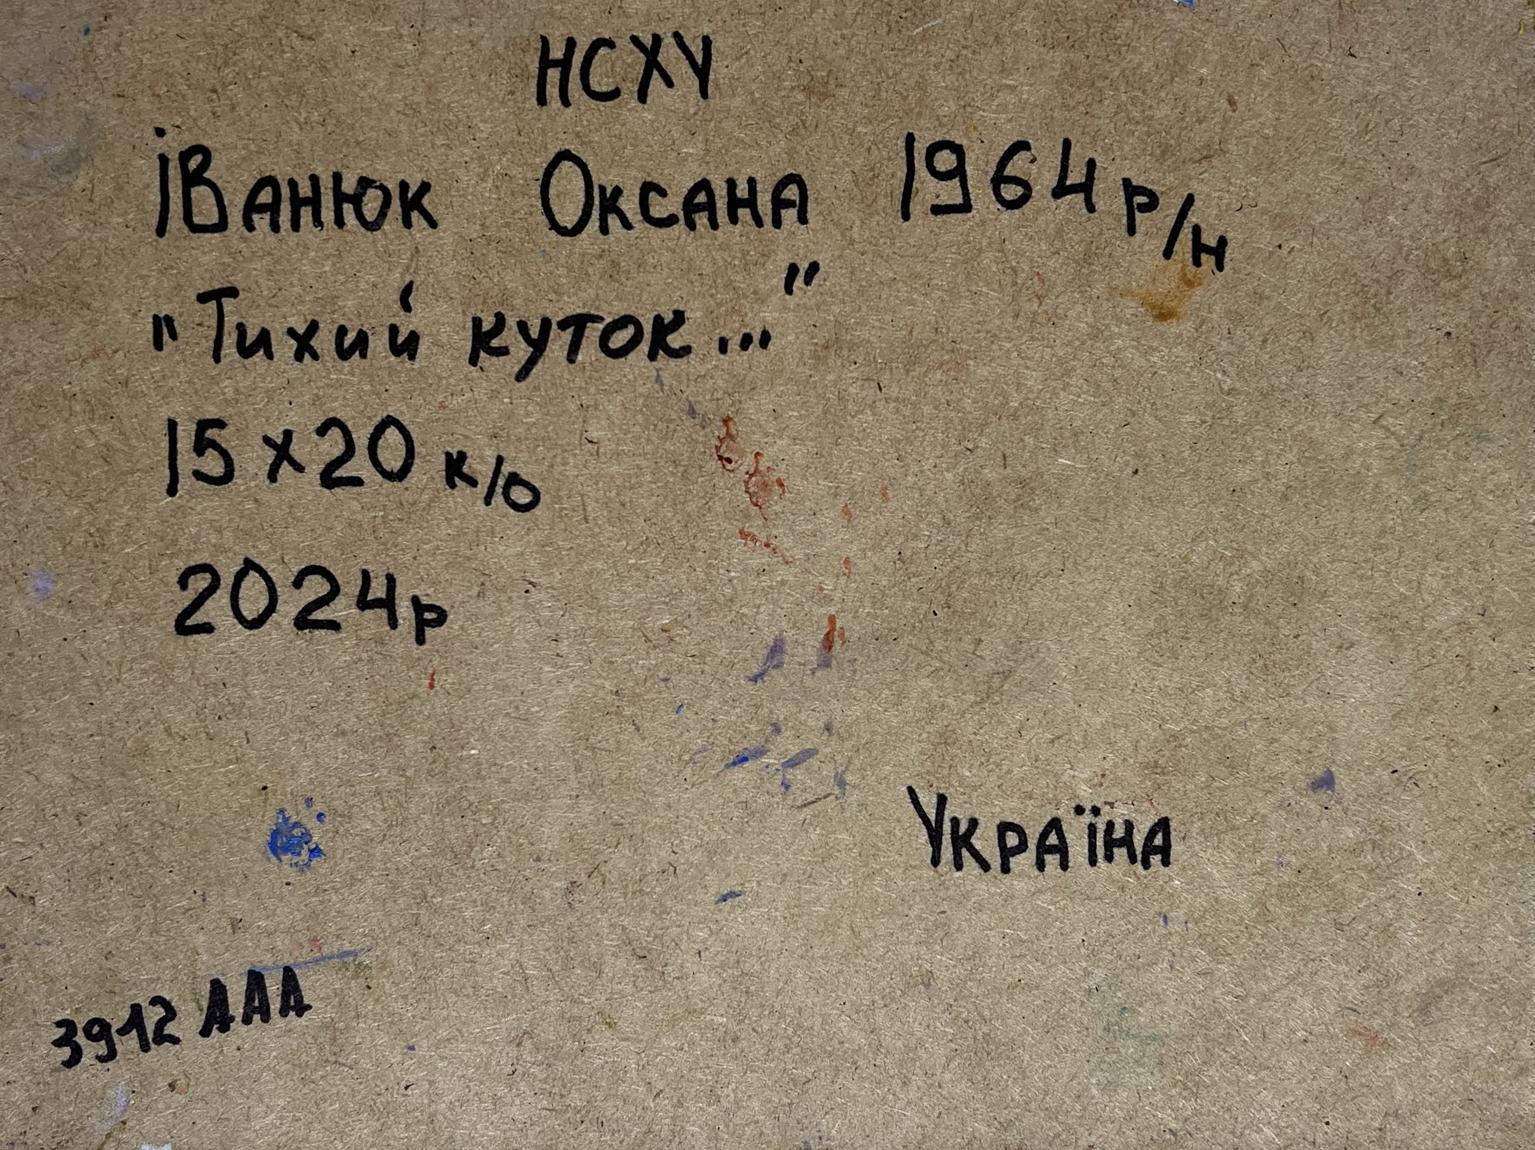 НСХУ
Іванюк Оксана 1964 р/н
"Тихий куток..."
15 х 20 к/о
2024р
Україна
3912 ААА